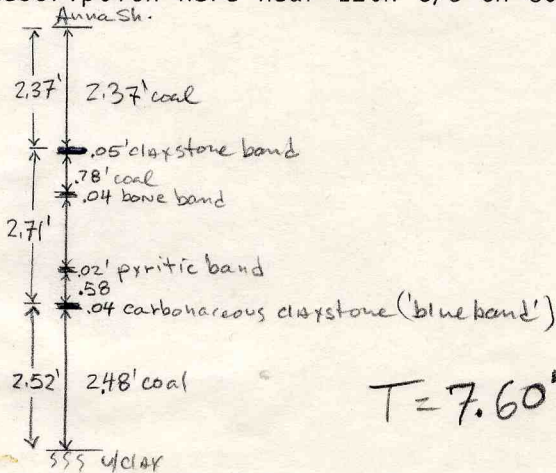 Anna Sh.
2.37' 2.37' coal
.05' claystone band
.78' coal
.04 bone band
2.71'
.02' pyritic band
.58
.04 carbonaceous claystone ('blue band')
2.52' 2.48' coal
T = 7.60'
u/clay